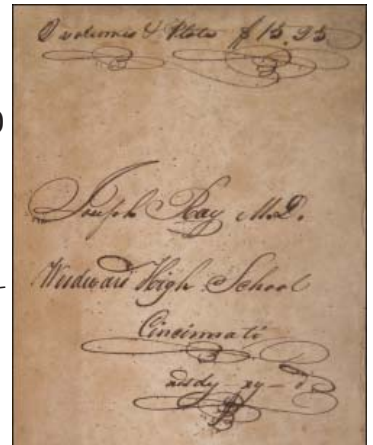 & Plats $15.95
Joseph Ray M.D.
Woodward High School
Cincinnati